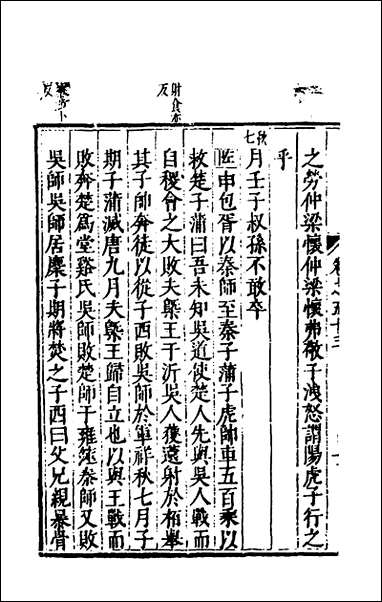 卷之五十三
之勞仲梁懷仲梁懷弗敬子洩怒謂陽虎子行之
乎
秋七月壬子叔孫不敢卒
左申包胥以秦師至秦子蒲子虎帥車五百乘以
射食亦
反
救楚子蒲曰吾未知吳道使楚人先與吳人戰而
自稷會之大敗夫槩王于沂吳人獲薳射於柏舉
其子帥奔徒以從子西敗吳師於軍祥秋七月子
期子蒲滅唐九月夫槩王歸自立也以與王戰而
敗奔楚爲堂谿氏吳師敗楚師于雍澨秦師又敗
反
吳師吳師居麇子期將焚之子西曰父兄親暴骨